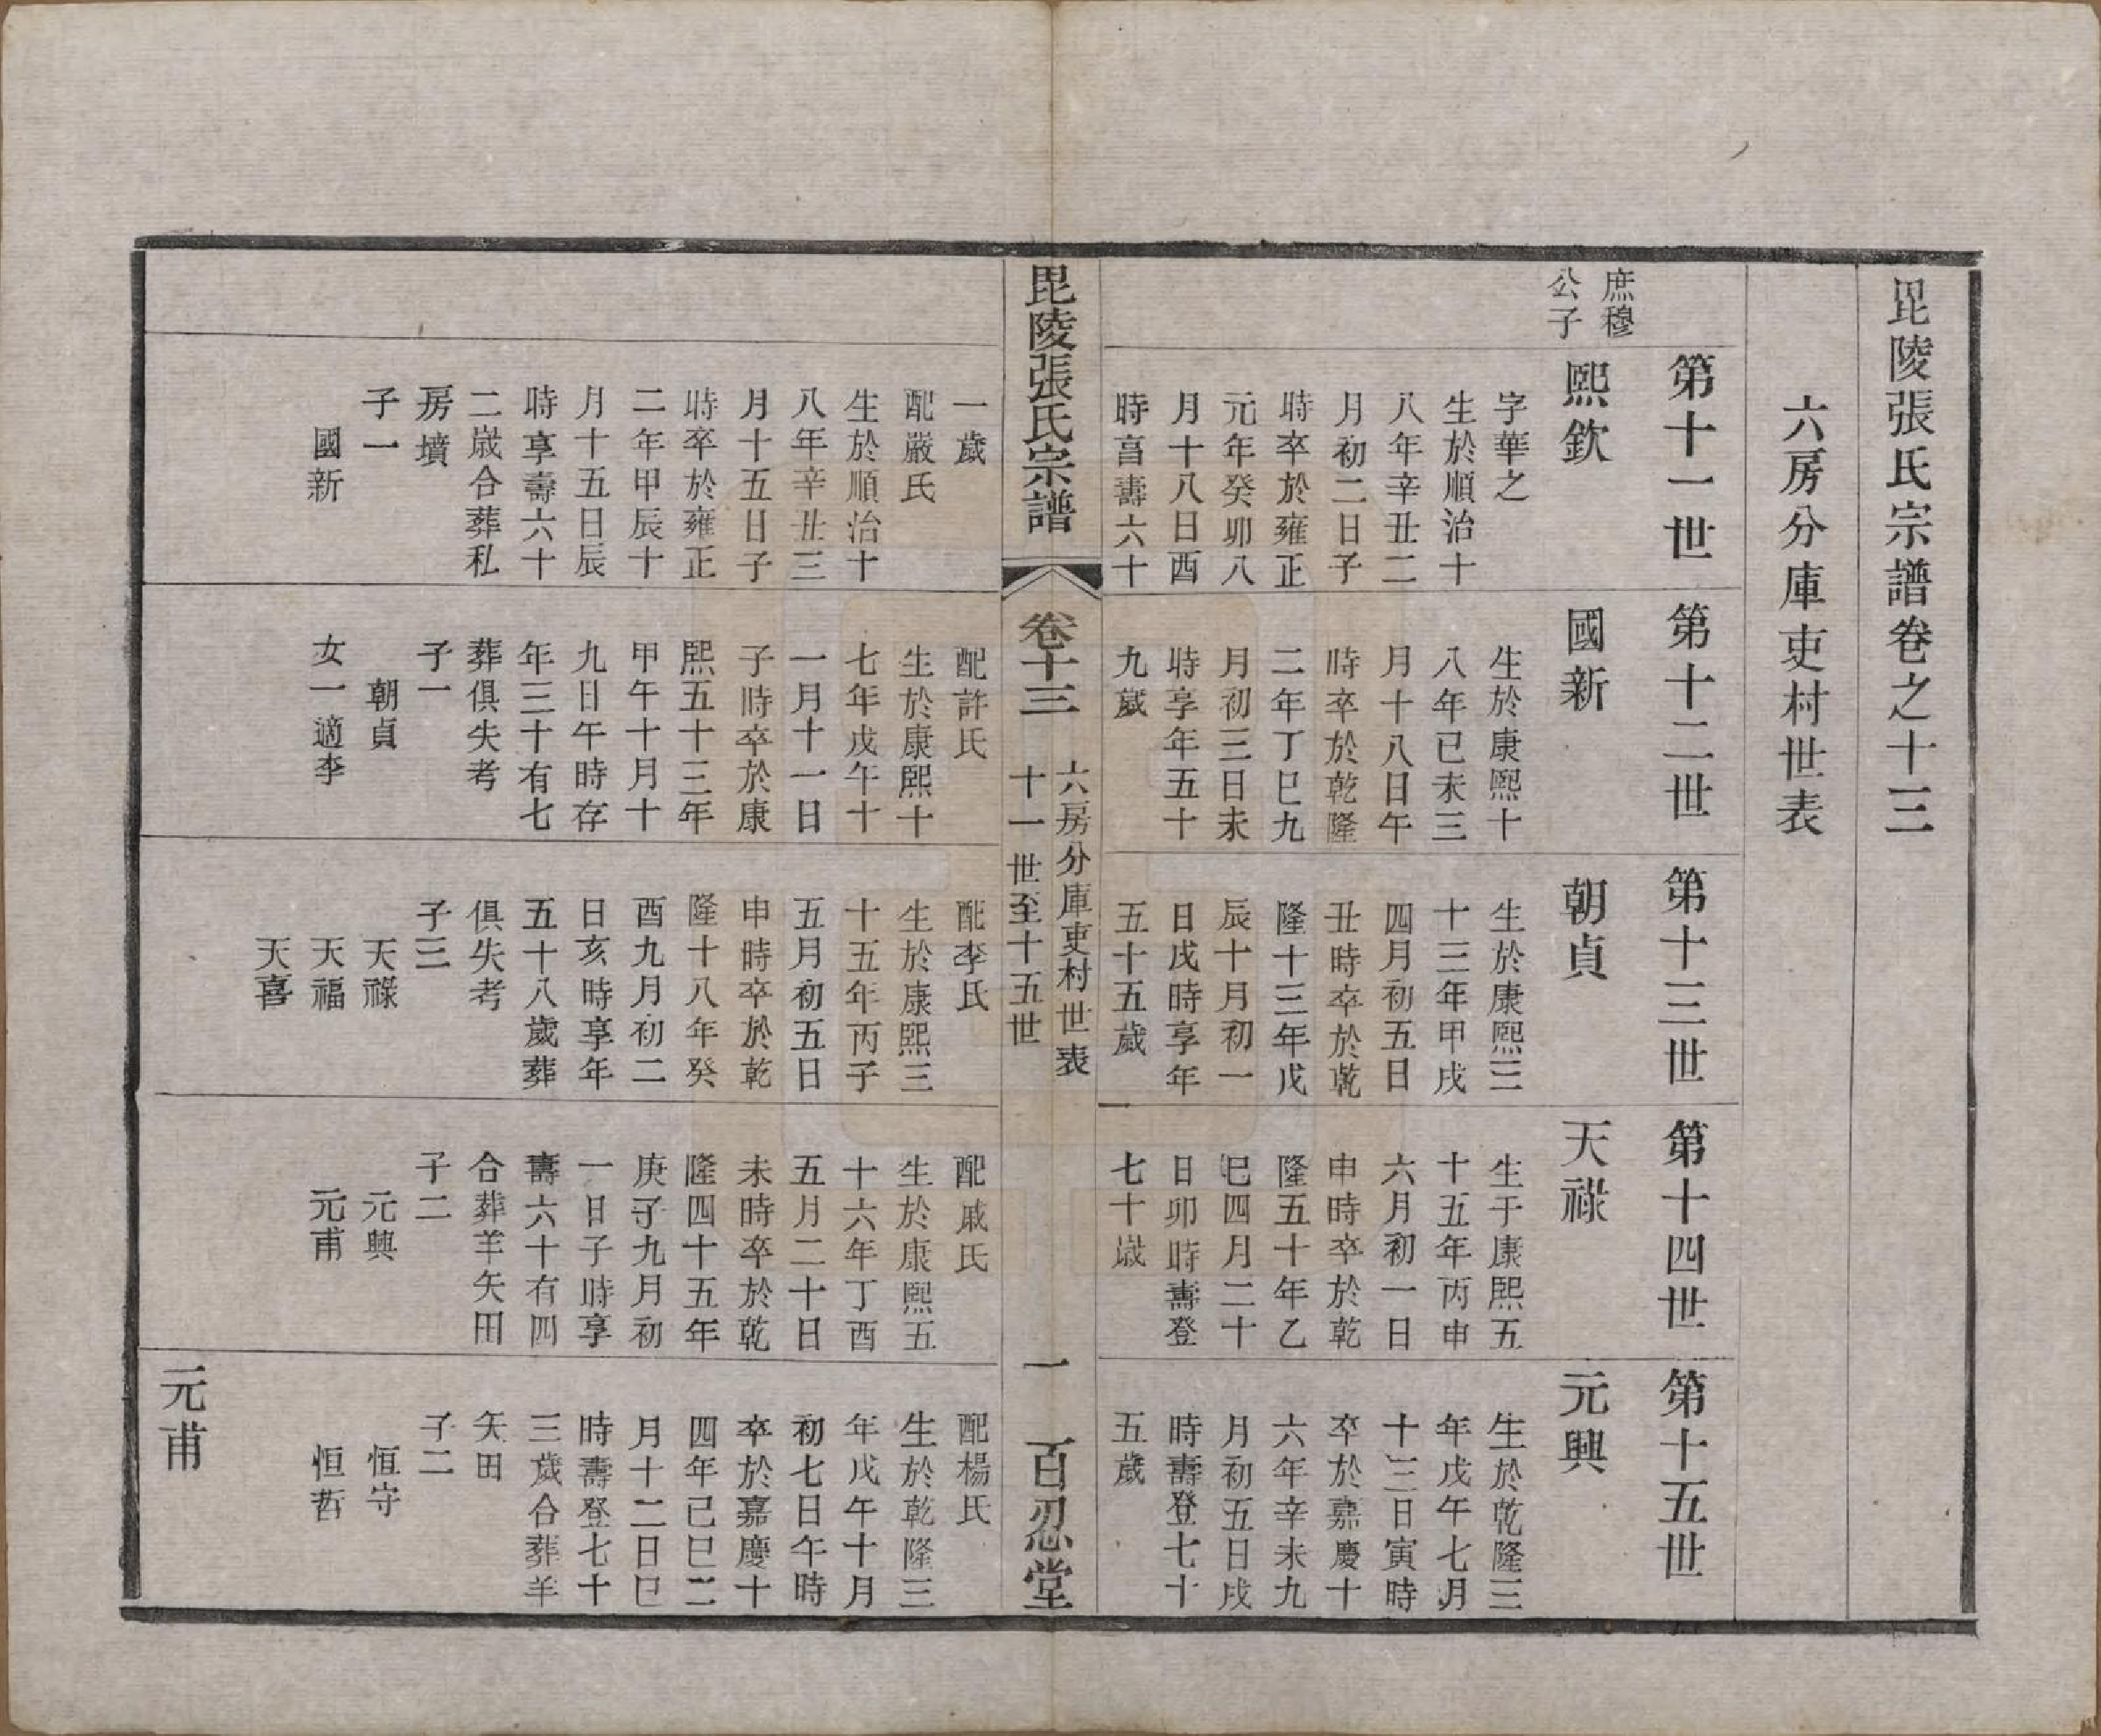 毘陵張氏宗譜卷之十三
六房分庫吏村世表
第十一世
庶穆
公子
熙欽
字華之
生於順治十
八年辛丑二
月初二日子
時卒於雍正
元年癸卯八
月十八日酉
時享壽六十
一歲
配嚴氏
生於順治十
八年辛丑三
月十五日子
時卒於雍正
二年甲辰十
月十五日辰
時享壽六十
二歲合葬私
房墳
子一
國新
第十二世
國新
生於康熙十
八年己未三
月十八日午
時卒於乾隆
二年丁巳九
月初三日未
時享年五十
九歲
配許氏
生於康熙十
七年戊午十
一月十一日
子時卒於康
熙五十三年
甲午十月十
九日午時存
年三十有七
葬俱失考
子一
朝貞
女一適李
第十三世
朝貞
生於康熙三
十三年甲戌
四月初五日
丑時卒於乾
隆十三年戊
辰十月初一
日戌時享年
五十五歲
配李氏
生於康熙三
十五年丙子
五月初五日
申時卒於乾
隆十八年癸
酉九月初二
日亥時享年
五十八歲葬
俱失考
子三
天祿
天福
天喜
第十四世
天祿
生于康熙五
十五年丙申
六月初一日
申時卒於乾
隆五十年乙
巳四月二十
日卯時壽登
七十歲
配戚氏
生於康熙五
十六年丁酉
五月二十日
未時卒於乾
隆四十五年
庚子九月初
一日子時享
壽六十有四
合葬羊矢田
子二
元興
元甫
第十五世
元興
生於乾隆三
年戊午七月
十三日寅時
卒於嘉慶十
六年辛未九
月初五日戌
時壽登七十
五歲
配楊氏
生於乾隆三
年戊午十月
初七日午時
卒於嘉慶十
四年己巳二
月十二日巳
時壽登七十
三歲合葬羊
矢田
子二
恒守
恒哲
元甫
毘陵張氏宗譜
卷十三
六房分庫吏村世表
十一世至十五世
一
百忍堂